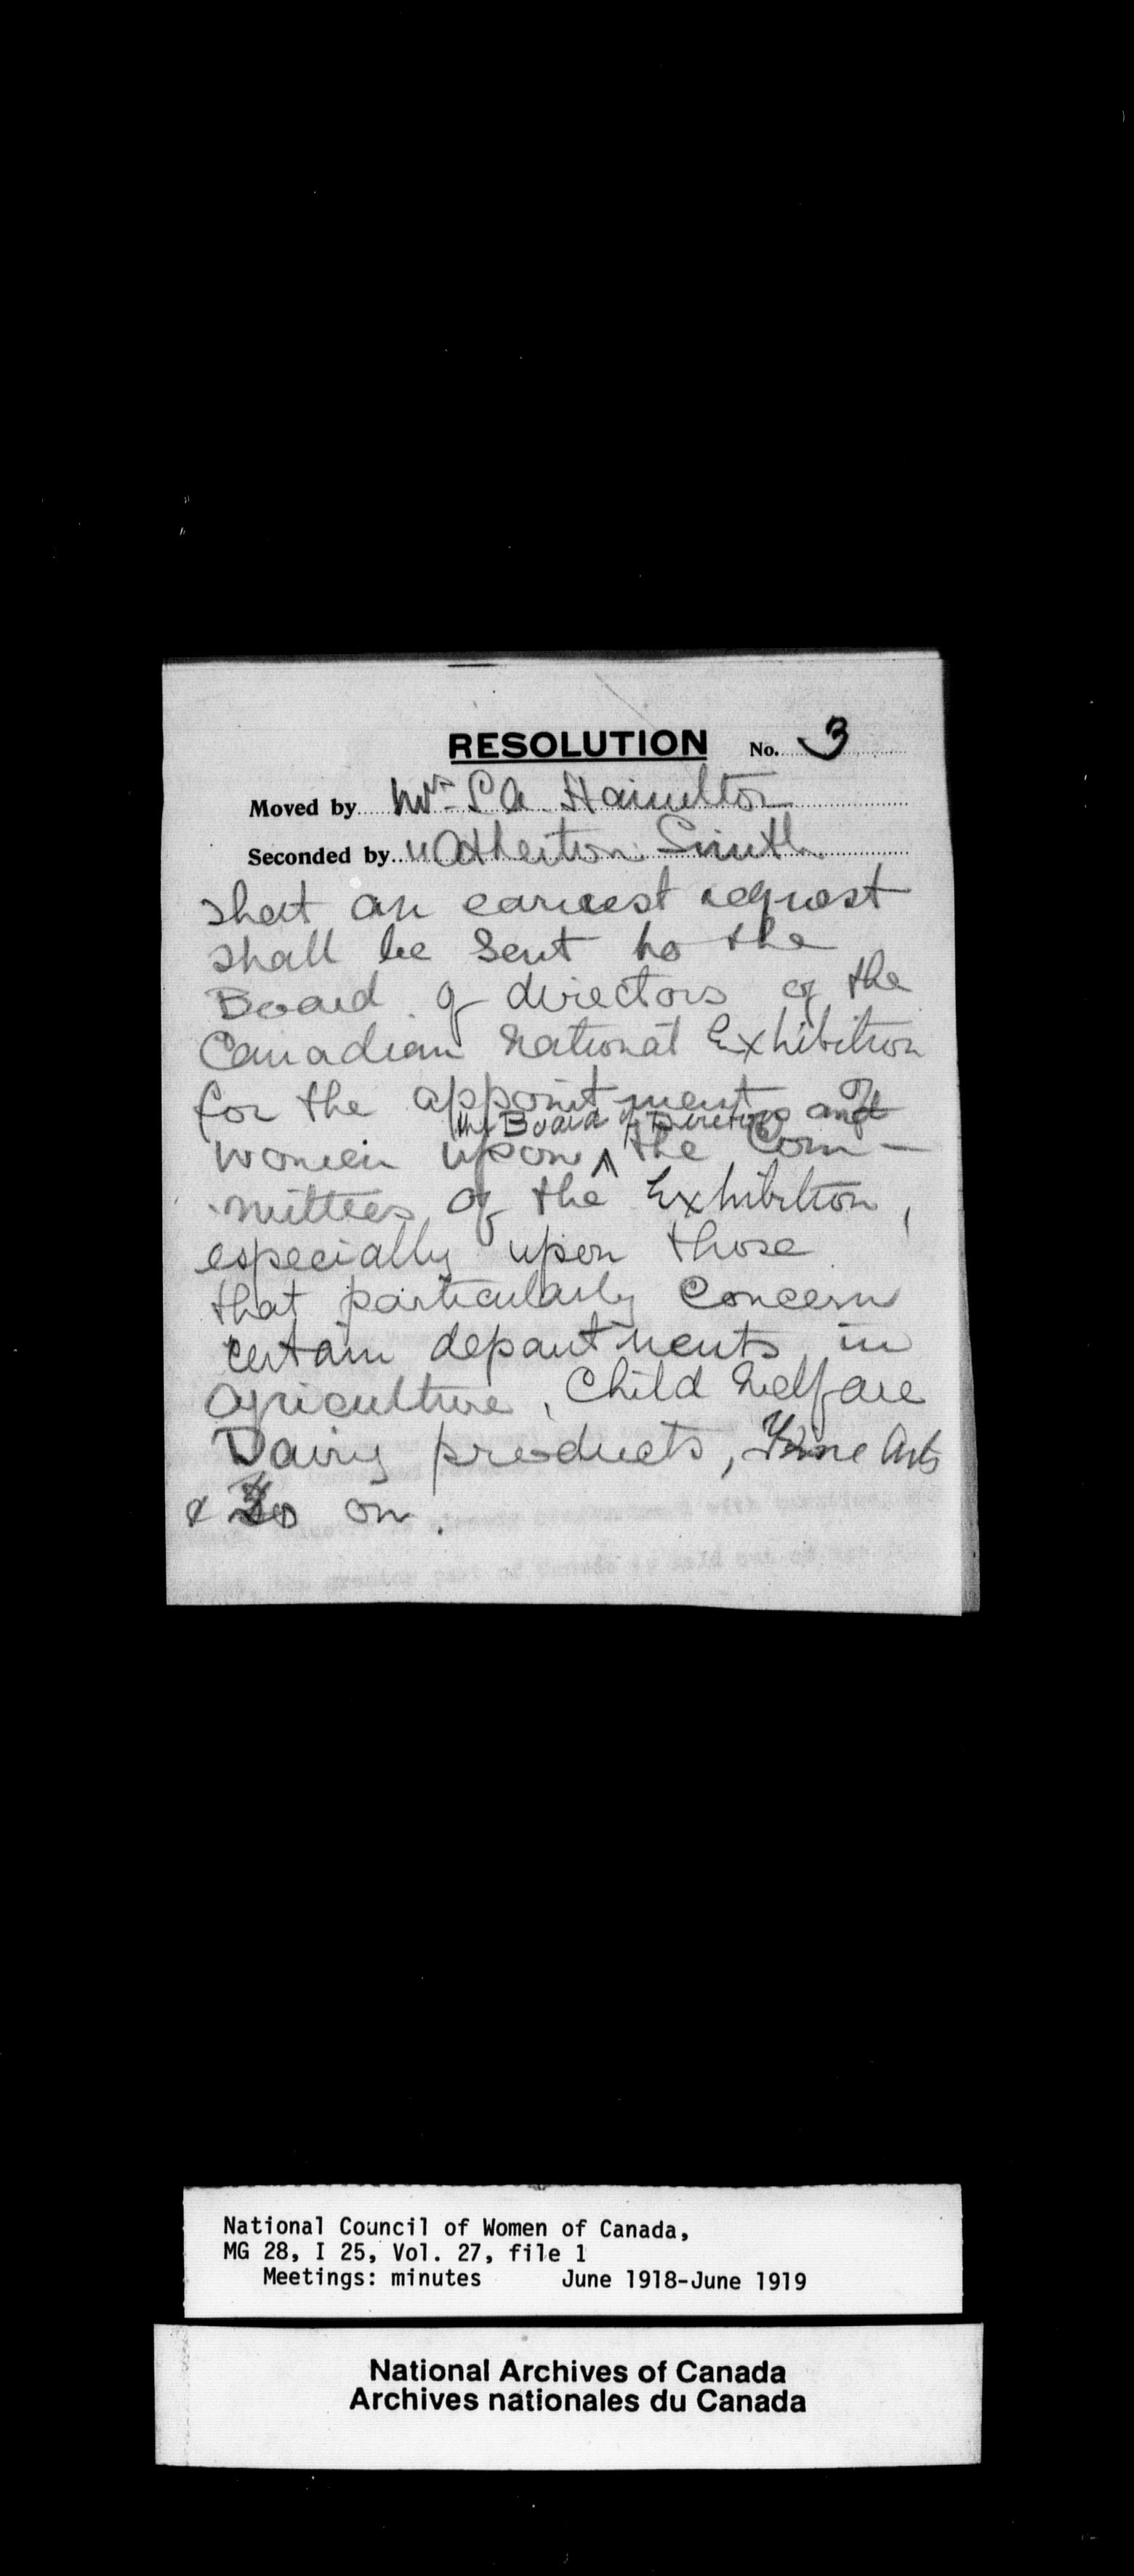 RESOLUTION No. 3
Moved by Mrs. L A Hamilton
Seconded by " Atherton Smith
that an earnest request
shall be sent to the
Board of directors of the
Canadian National Exhibition
for the appointment of
the Board of Directors and
women upon ^ the Com-
mittees of the Exhibition,
especially upon those
that particularly concern
certain departments in
Agriculture, Child Welfare
Dairy products, Fine Arts
& so on.
National Council of Women of Canada,
MG 28, I 25, Vol. 27, file 1
Meetings: minutes June 1918-June 1919
National Archives of Canada
Archives nationales du Canada